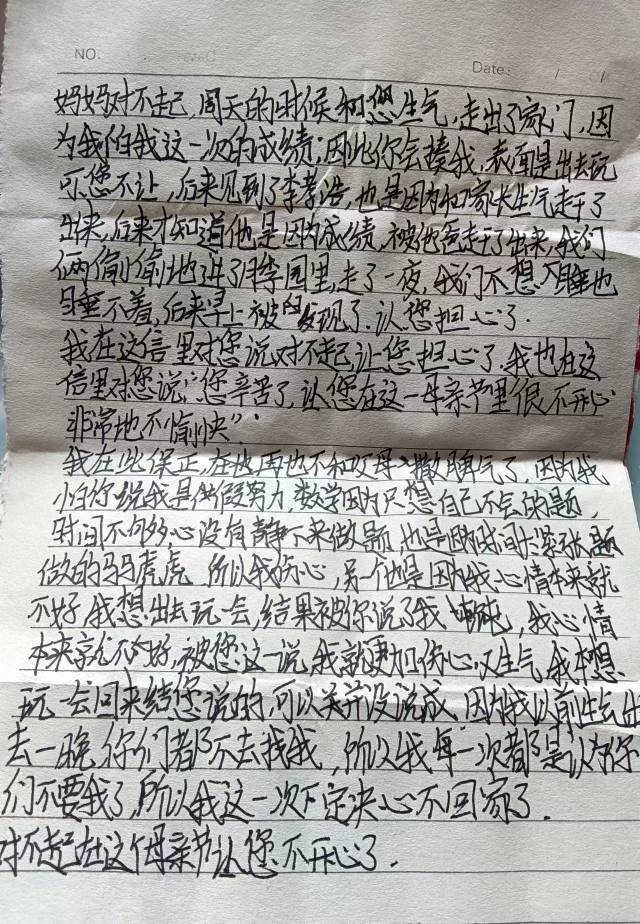 NO.
Date:
妈妈对不起,周天的时候和您生气,走出了家门,因
为我怕我这一次的成绩;因此你会揍我,表面是出去玩
可您不让,后来见到了李孝浩,也是因为和家长生气走了
出来,后来才知道他是因为成绩,被他爸走了出来,我们
俩偷偷地进了月季园里,走了一夜,我们不想睡也
睡不着,后来早上被发现了,让您担心了.
我在这信里对您说对不起让您担心了.我也在这
信里对您说:"您辛苦了,让您在这一母亲节里很不开心
非常地不愉快".
我在此保正,在也不和父母撒脾气了,因为我
怕你说我是供假努力,数学因为只想自己不会的题,
时间不够多心没有静下来做题,也是因为时间太紧张题
做的马马虎虎 所以我伤心,另一个也是因为我心情本来就
不好,我想出去玩一会,结果被你说了我一顿,我心情
本来就不好,被您这一说,我就更加伤心又生气,我本想
玩一会回来给您说的,可以关并没说成,因为我以前生气出
去一晚你们都不去找我,所以我每一次都是认为你
们不要我了,所以我这一次下定决心不回家了.
对不起在这母亲节让您不开心了.